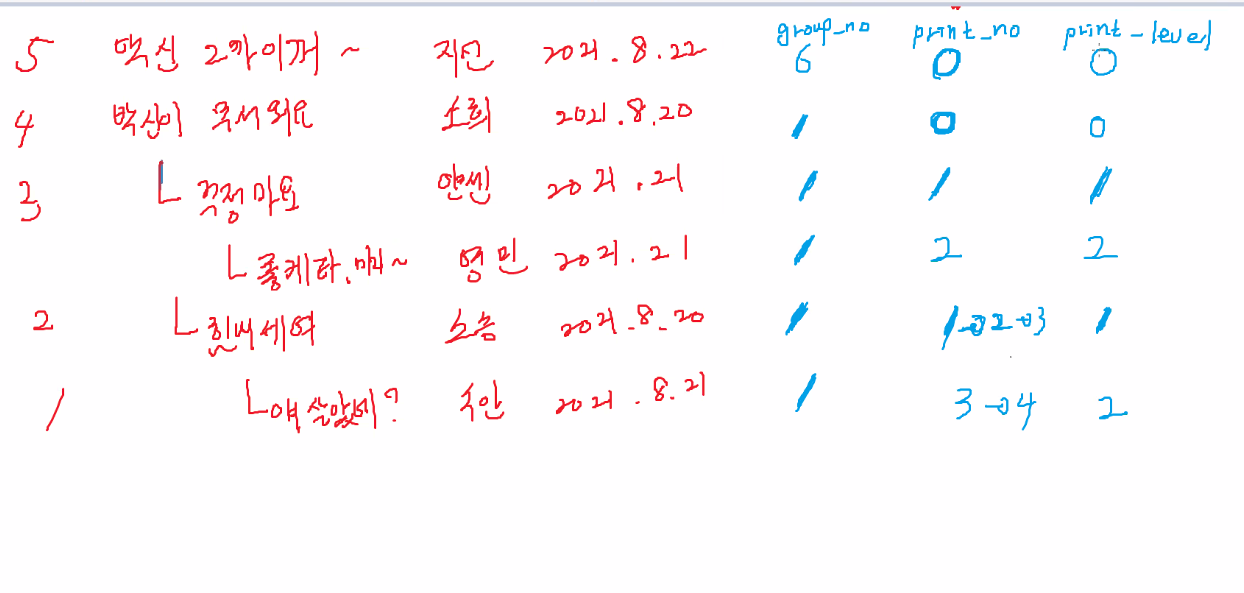 group_no print_no print-level
5 백신 2까이꺼~ 지민 2021.8.22 6 0 0
4 백신이 무서워요 소희 2021.8.20 1 0 0
3 ㄴ걱정마요 2021.21 1 1 1
ㄴ좋케따.마자~ 영민 2021.21 1 2 2
2 ㄴ힘내세여 소승 2021.8.20 1 1→2→3 1
1 ㄴ여 2021.8.21 1 3→4 2